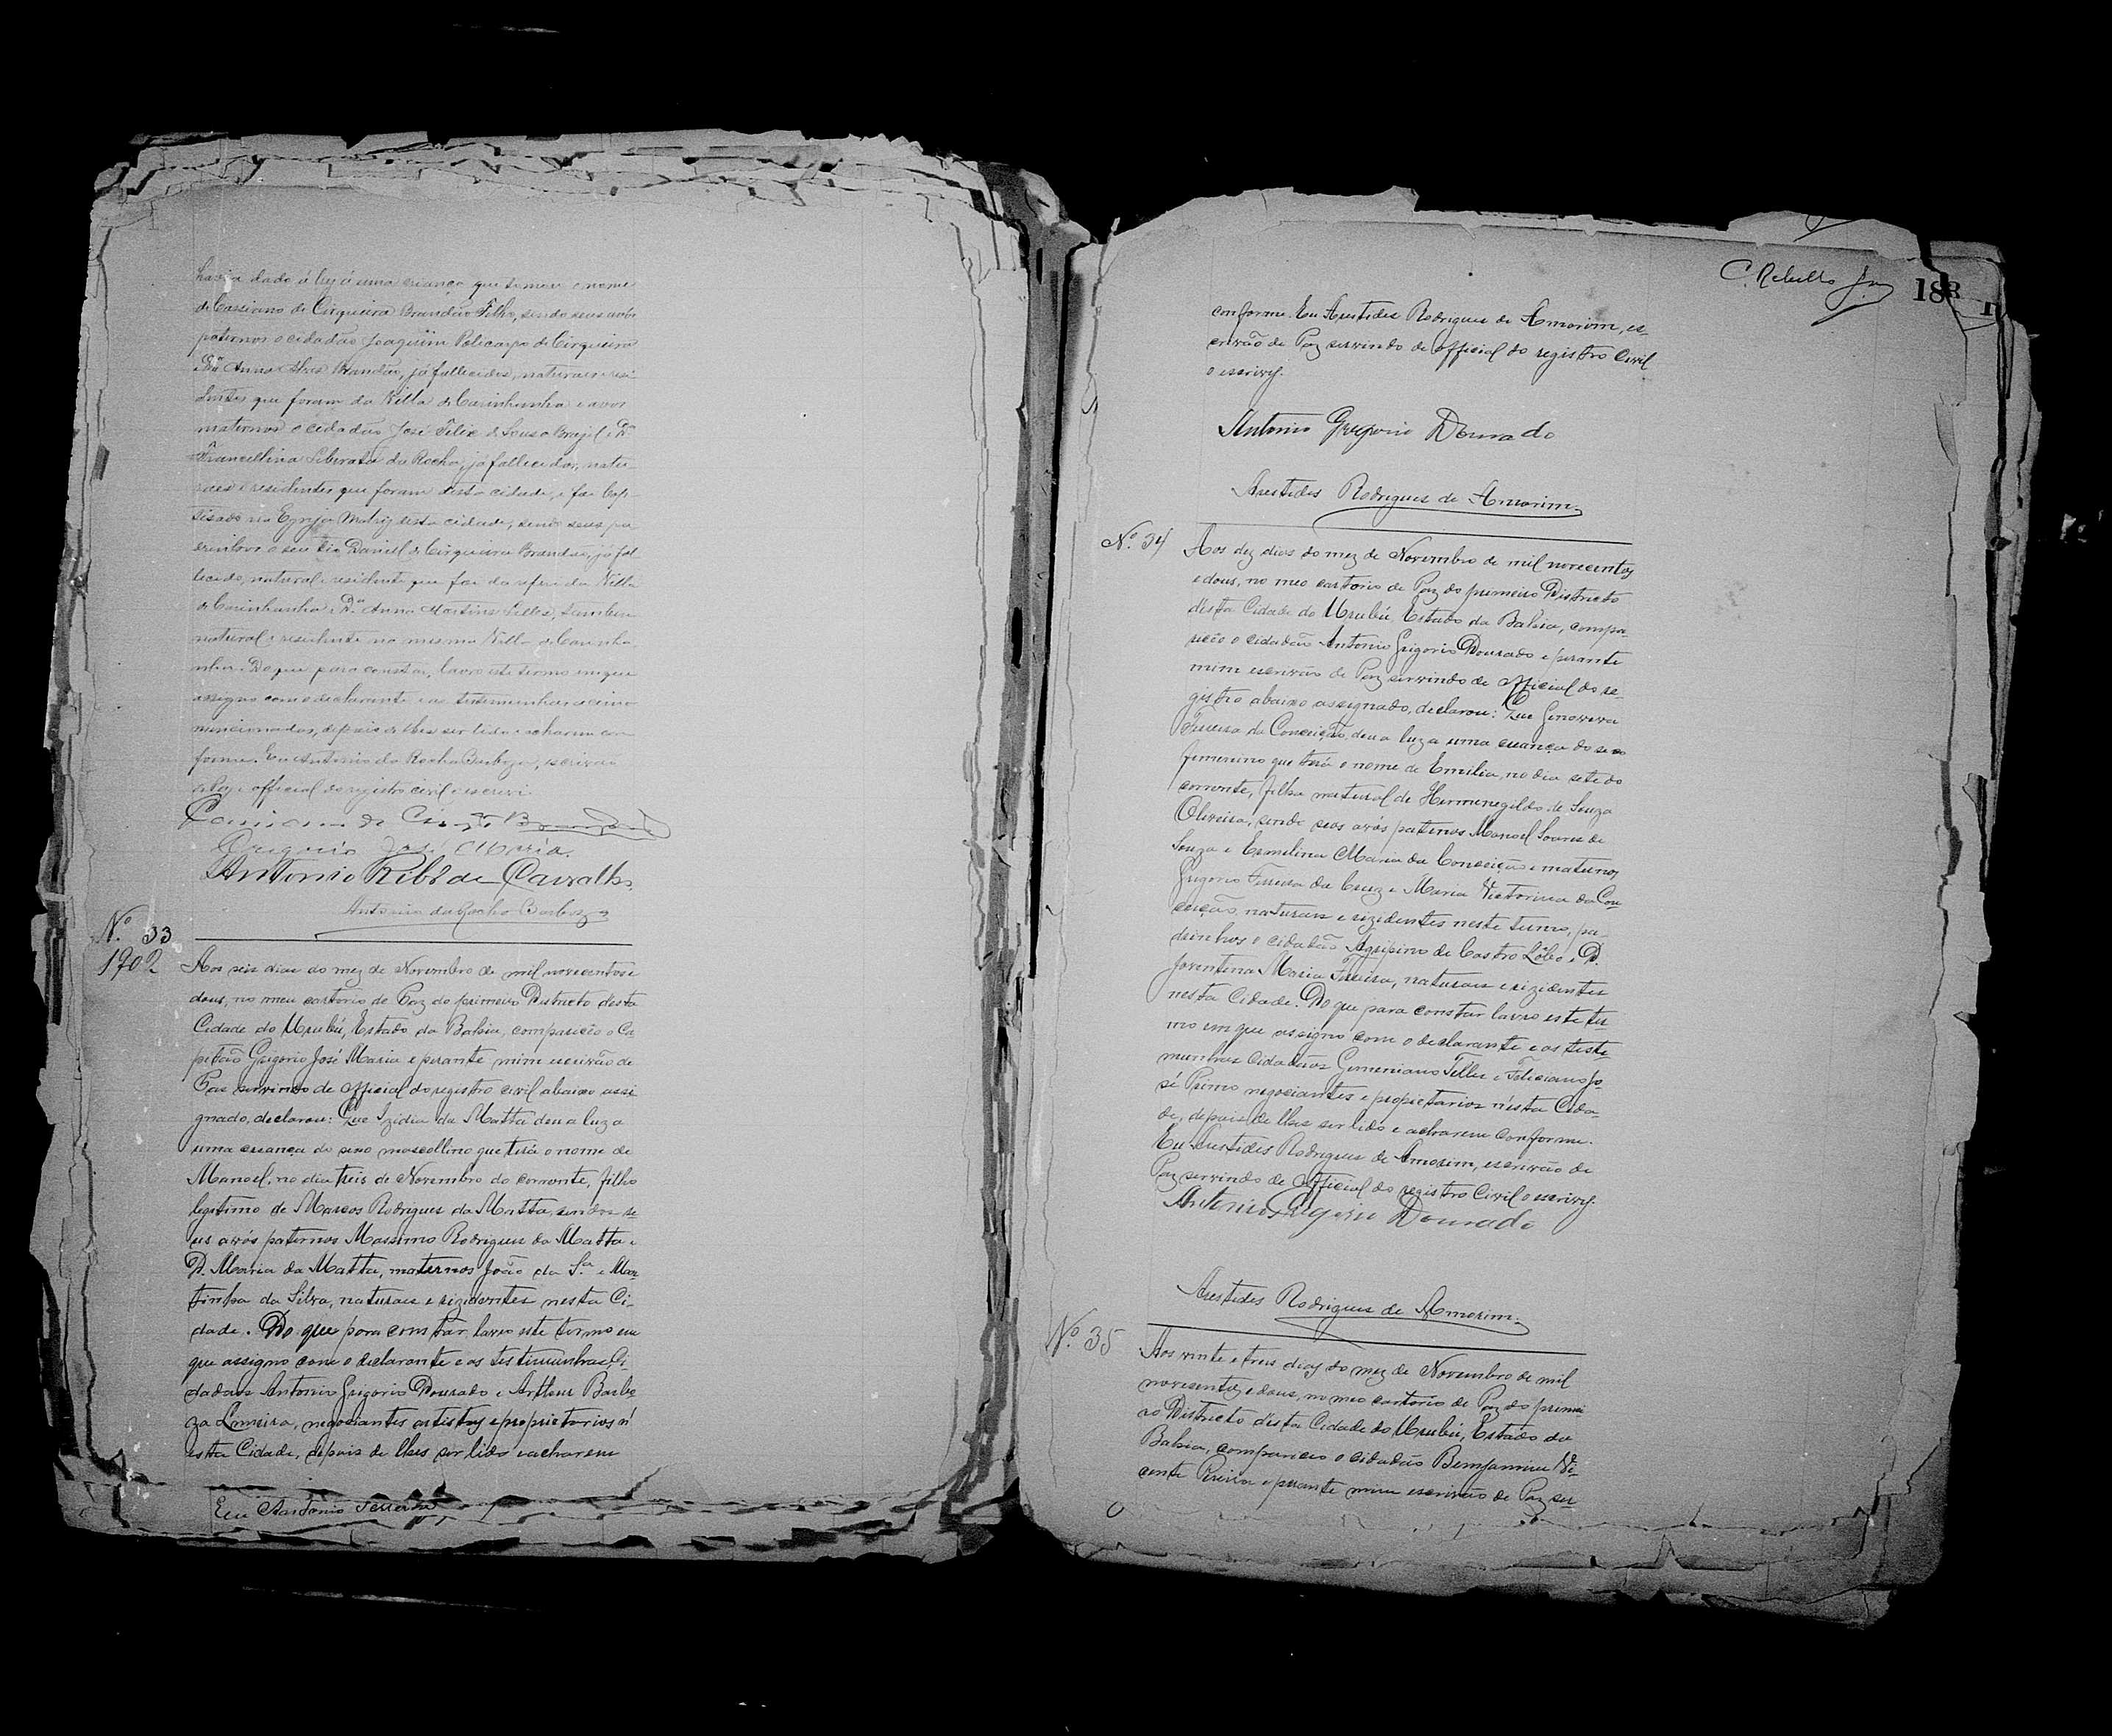 havia dado á luz á uma criança que tomou o nome
de Cassiano de Cirqueira Brandão Filho, sendo seus avós
paternos o cidadão Joaquim Policarpo de Cirqueira
e Dª Anna Alves Brandão, já fallecidos, naturaes e resi-
dentes que foram da Villa de Carinhanha e avos
maternos o cidadão José Felix de Sousa Brazil e Dª
Francellina Liberata da Rocha, já fallecidos, natu-
raes e residentes que foram desta cidade, e foi bap-
tisado na Egreja Matriz desta cidade, sendo seus pa
drinhos o seu tio Daniel de Cirqueira Brandão, já fal-
lecido, natural e residente que foi da referida Villa
de Carinhanha e Dª Anna Martins Telles, tambem
natural e residente na mesma Villa de Carinha
nha. Do que para constar, lavro este termo em que
assigno com o declarante e as testemunhas acima
mencionadas, depois de lhes ser lido e acharem con
forme. Eu Antonio da Rocha Barboza, escrivão
de Paz e official do registro civil o escrevi.
Gregorio José Maria.
Antonio Ribº de Carvalho
Antonio da Rocha Barboza
Nº 33
1902
Aos seis dias do mez de Novembro de mil novecentos e
dous, no meu cartorio de Paz do primeiro Districto desta
Cidade do Urubú, Estado da Bahia, compareceo o Ca
pitão Grigorio José Maria e perante mim escrivão de
Paz servindo de official do registro civil abaixo assi
gnado, declarou: Que Izidia da Matta deu a luz a
uma creança do sexo mascollino que terá o nome de
Manoel, no dia treis de Novembro do corrente, filho
legitimo de Marcos Rodrigues da Matta, sendo se-
us avós paternos Massimo Rodrigues da Matta e
D. Maria da Matta, maternos João da Sª e Mar
tinha da Silva, naturaes e rizidentes nesta Ci-
dade. Do que para constar, lavro este termo em
que assigno com o declarante e as testimunhas Ci-
dadãos Antonio Grigorio Dourado e Arthur Barbo
za Limeira, negociantes artistas e proprietarios n'
esta Cidade, depois de lhes ser lido e acharem
Eu Antonio Ferreira
C. Rebello Jor
183
conforme. Eu Arestides Rodrigues de Amorim, es-
crivão de Paz servindo de official do registro Civil
o escrivy.
Antonio Gregorio Dourado
Arestides Rodrigues de Amorim.
Nº 34
Aos dez dias do mez de Novembro de mil novecentos
e dous, no meo cartorio de Paz do primeiro Districto
d'esta Cidade do Urubú, Estado da Bahia, compa-
receo o cidadão Antonio Grigorio Dourado e perante
mim escrivão de Paz servindo de official do re-
gistro abaixo assignado, declarou: Que Genoveva
Ferreira da Conceição, deu a luz a uma creança do sexo
femenino que terá o nome de Emilia, no dia sete do
corrente, filha natural de Hermenegildo de Souza
Oliveira, sendo seos avós paternos Manoel Soares de
Souza e Ermelina Maria da Conceição e maternos
Grigorio Ferreira da Cruz e Maria Victorina da Con
ceição, naturaes e rizidentes neste termo, pa-
drinhos o cidadão Agripino de Castro Lôbo e D.
Joventina Maria Ferreira, naturaes e rizidentes
nesta Cidade. Do que para constar lavro este ter
mo em que assigno com o declarante e as teste-
munhas Cidadãos Gemeniano Telles e Feliciano Jo-
sé Primo negociantes e propietarios n'esta Cida-
de, depois de lhes ser lido e acharem conforme.
Eu Arestides Rodrigues de Amorim, escrivão de
Paz servindo de official do registro Civil o escrivy.
Antonio Gregorio Dourado
Arestides Rodrigues de Amorim.
Nº 35
Aos vinte e treis dias do mez de Novembro de mil
novesentos e dous, no meo cartorio de Paz do primei
ro Districto d'esta Cidade do Urubú, Estado da
Bahia, compareceo o cidadão Bemjamim Vi-
cente Pereira e perante mim escrivão de Paz ser